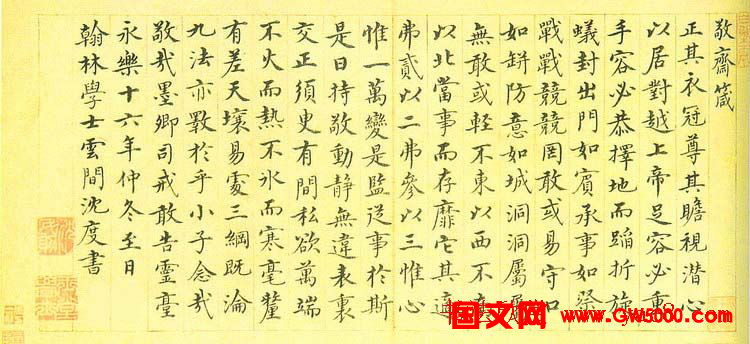 敬齋箴
正其衣冠尊其瞻視潛心
以居對越上帝足容必重
手容必恭擇地而蹈折旋
蟻封出門如賓承事如祭
戰戰兢兢罔敢或易守口
如缾防意如城洞洞屬屬
無敢或輕不東以西不南
以北當事而存靡它其適
弗貳以二弗參以三惟心
惟一萬變是監從事於斯
是曰持敬動靜無違表裏
交正須臾有間私欲萬端
不火而熱不氷而寒毫釐
有差天壤易處三綱既淪
九法亦斁於乎小子念哉
敬哉墨卿司戒敢告靈臺
永樂十六年仲冬至日
翰林學士雲間沈度書
国文网 www.GW5000.com